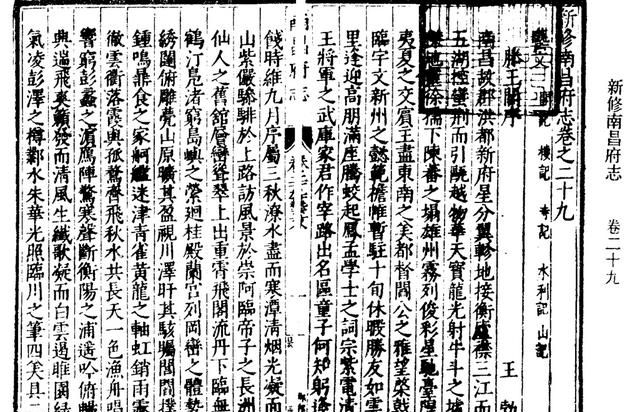 新修南昌府志 卷二十九
新修南昌府志卷之二十九
藝文 記 樓記 寺記 水利記 山記
滕王閣序 王勃
南昌故郡洪都新府星分翼軫地接衡廬襟三江而
五湖控蠻荊而引甌越物華天寶龍光射牛斗之墟
傑地靈徐孺下陳蕃之榻雄州霧列俊彩星馳臺隍
夷夏之交賓主盡東南之美都督閻公之雅望棨戟
臨宇文新州之懿範襜帷暫駐十旬休暇勝友如雲
里逢迎高朋滿座騰蛟起鳳孟學士之詞宗紫電清
王將軍之武庫家君作宰路出名區童子何知躬逢
南昌府志
餞時維九月序屬三秋潦水盡而寒潭清烟光凝而
山紫儼驂騑於上路訪風景於崇阿臨帝子之長洲
仙人之舊館層巒聳翠上出重霄飛閣流丹下臨無
鶴汀鳧渚窮島嶼之縈迴桂殿蘭宮列岡巒之體勢
繡闥俯雕甍山原曠其盈視川澤盱其駭矚閭閻撲
鍾鳴鼎食之家舸艦迷津青雀黃龍之軸虹銷雨霽
徹雲衢落霞與孤鶩齊飛秋水共長天一色漁舟唱
響窮彭蠡之濱鴈陣驚寒聲斷衡陽之浦遙吟俯暢
興遄飛爽籟發而清風生纖歌凝而白雲遏睢園綠
氣凌彭澤之樽鄴水朱華光照臨川之筆四美具二